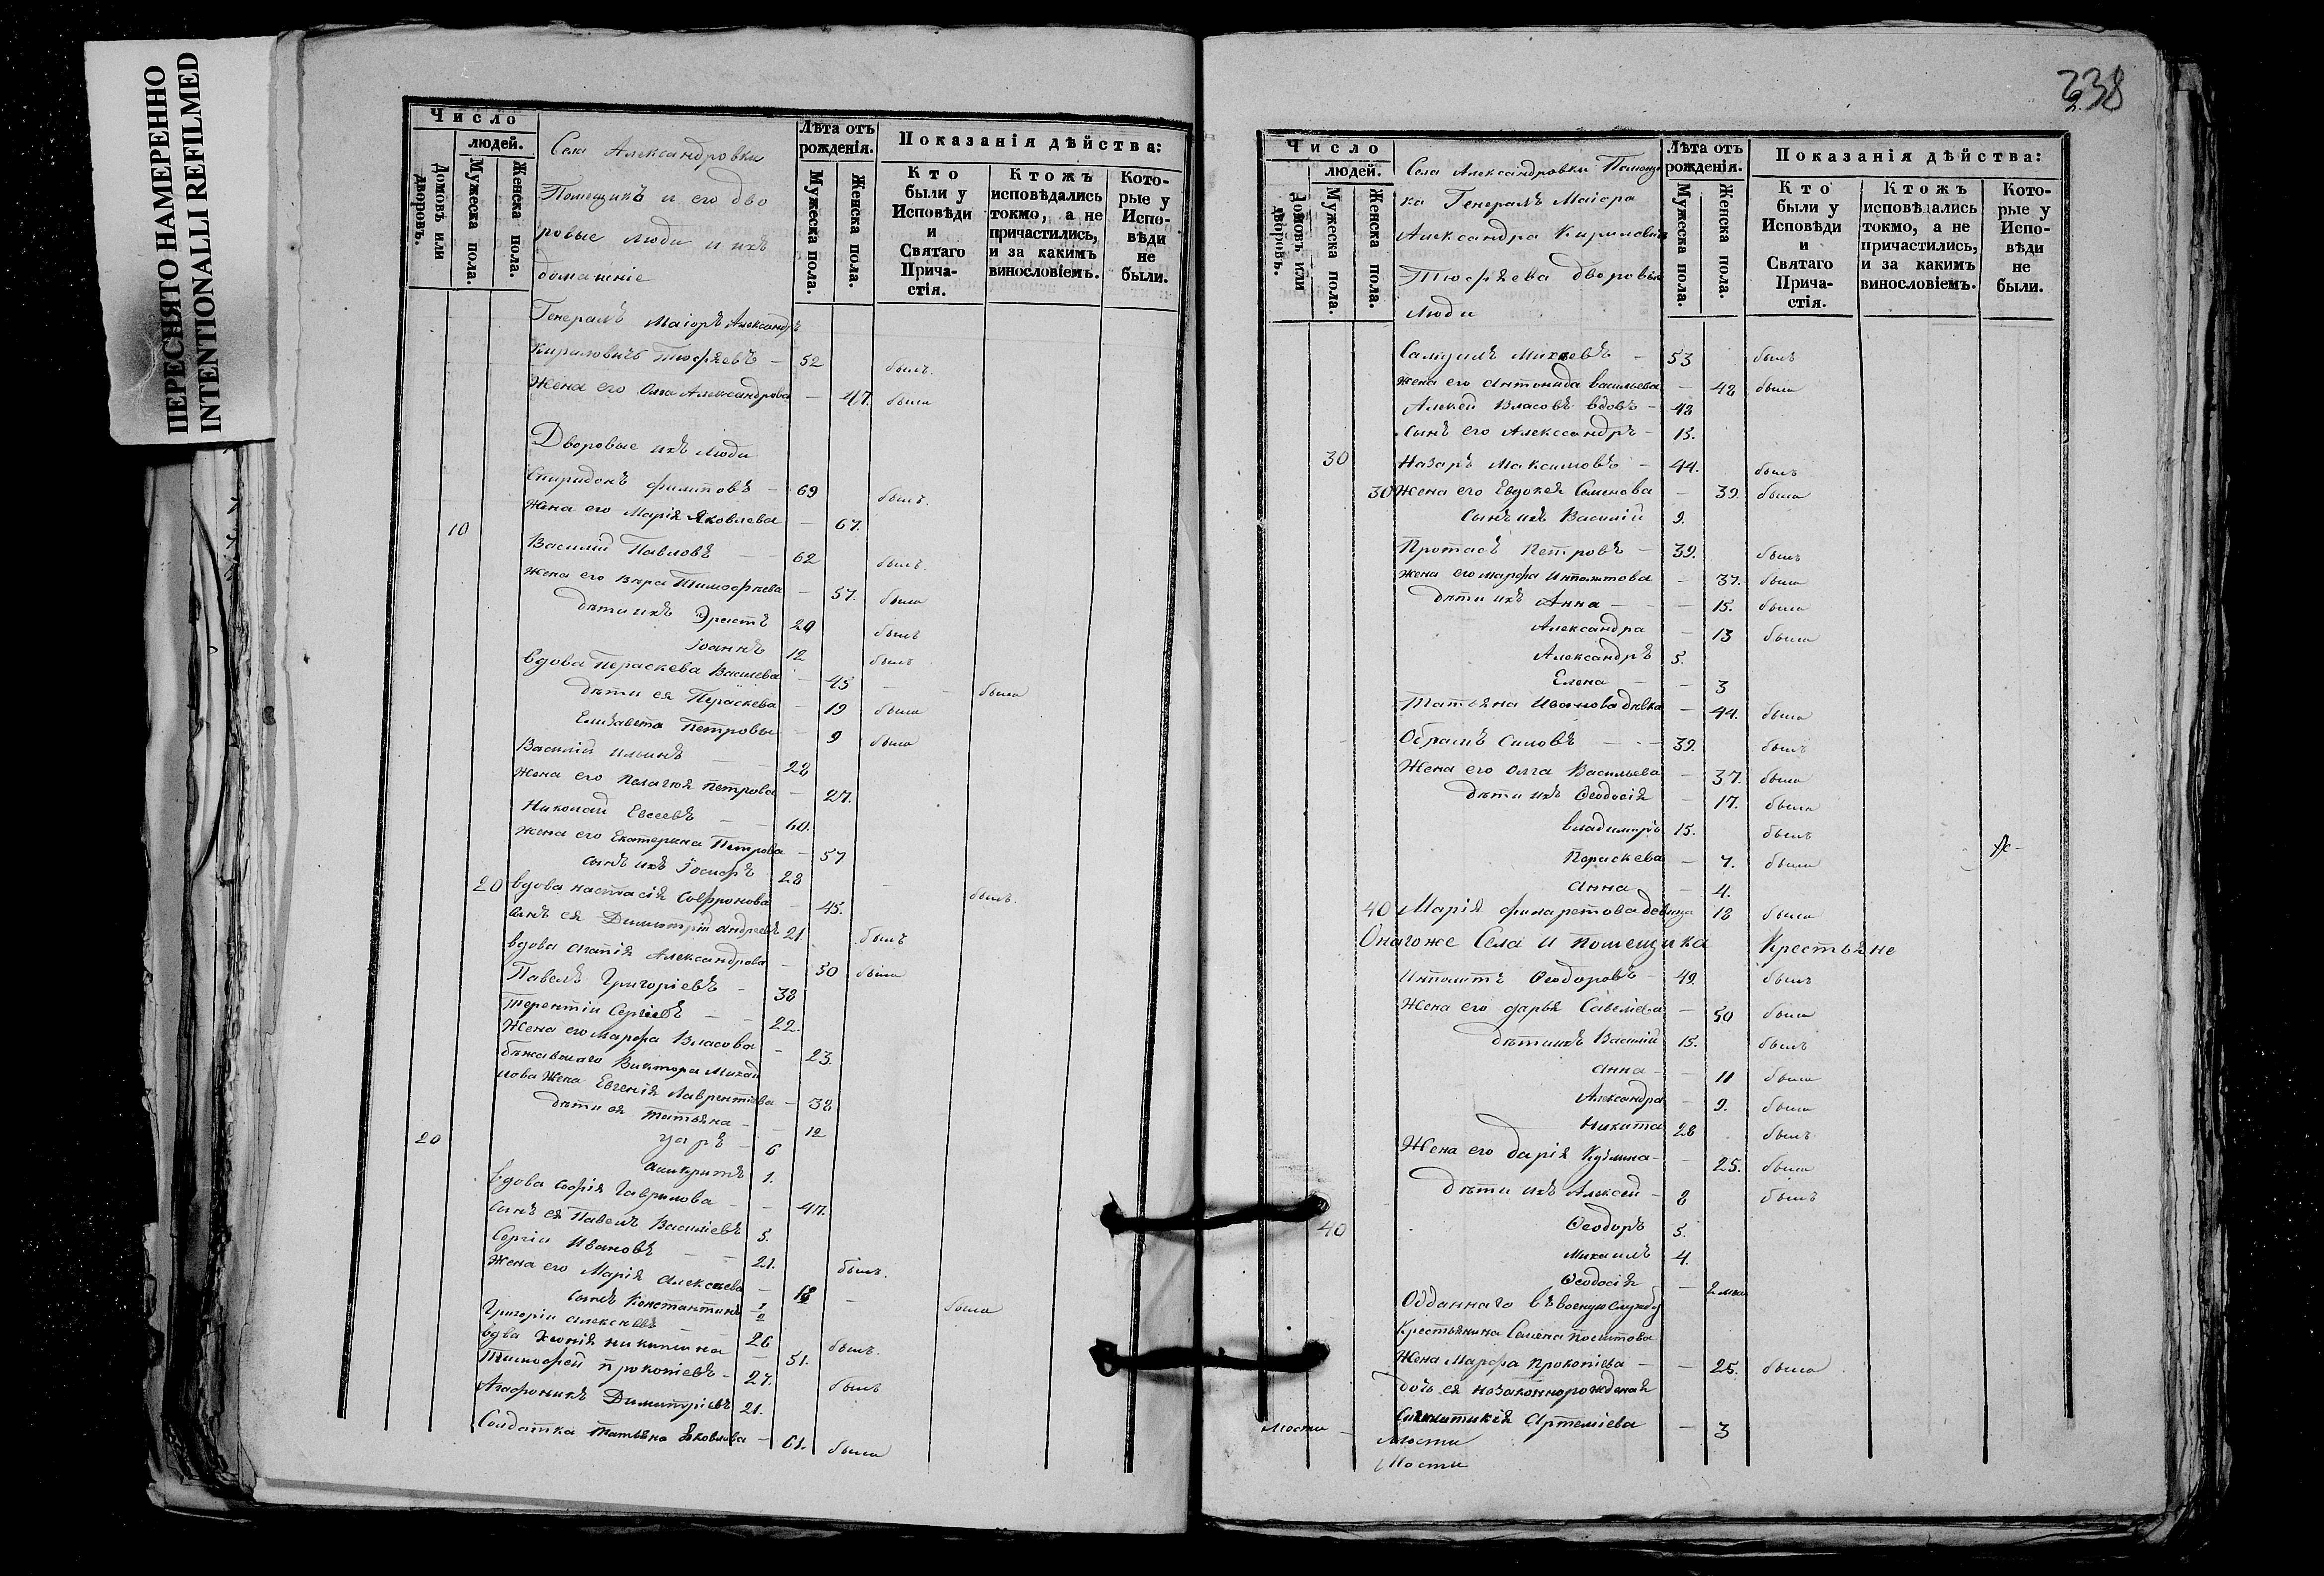 ПЕРЕСНЯТО НАМЕРЕННО
INTENTIONALLI REFILMED
Число
людей.
Домовъ или дворовъ.
Мужеска пола.
Женска пола.
Села Александровки
Помещикъ и его дво
ровые люди и ихъ
домашніе
Лѣта отъ рожденія.
Мужеска пола.
Женска пола.
Показанія дѣйства:
Кто были у Исповѣди и Святаго Причастія.
Ктожъ исповѣдались токмо, а не причастились, и за какимъ винословіемъ.
Которые у Исповѣди не были.
Генералъ Маіоръ Александръ
Кириловичъ Тюфяевъ — 52 былъ.
Жена его Олга Александрова — 47. была
Дворовые ихъ люди
Спиридонъ Филитовъ — 69 былъ.
Жена его Марія Яковлева — 67.
10
Василий Павловъ — 62 былъ.
Жена его Вера Тимофеева — 57. была
дѣти ихъ Эрастъ 20 былъ
Іоаннъ 12 былъ
Вдова Пераскева Васильева — 45 — была
дѣти ея Пераскева — 19 была
Елизавета Петровы — 9 была
Василій Ильинъ — 28
Жена его Пелагея Петрова — 27.
Николай Евсеевъ — 60.
Жена его Екатерина Петрова — 57
сынъ ихъ Іосифъ 28 — былъ.
20 вдова Настасія Софронова — 45.
сынъ ея Димитрій Андреевъ 21. былъ
вдова Агапія Александрова — 50 была
Павелъ Григоріевъ — 38
Терентій Сергіевъ — 22.
Жена его Марфа Власова — 23.
бѣжавшаго Виктора Михай
лова Жена Евгенія Лаврентіева — 38
дѣти ея Татьяна — 12
20
6
1.
вдова Софія Гаврилова — 47.
сынъ ея Павелъ Василіевъ 5.
Сергій Ивановъ — 21. былъ.
Жена его Марія Алексеева — 18 — была
сынъ Константинъ 1/2
Григорій Алексеевъ — 26 былъ.
вдва Хіонія Никитина — 51.
Тимофей Прокопіевъ — 27. былъ
Агафоникъ Димитріевъ 21.
Солдатка Татьяна Яковлева — 61. была
238
Число
людей.
Домовъ или дворовъ.
Мужеска пола.
Женска пола.
Села Александровки Помещи
ка Генералъ Маіора
Александра Кириловича
Тюфяева дворовые
Люди
Лѣта отъ рожденія.
Мужеска пола.
Женска пола.
Показанія дѣйства:
Кто были у Исповѣди и Святаго Причастія.
Ктожъ исповѣдались токмо, а не причастились, и за какимъ винословіемъ.
Которые у Исповѣди не были.
Самуилъ Михеевъ — 53 былъ
Жена его Антонида Васильева — 48 была
Алексей Власовъ вдовъ — 48
Сынъ его Александръ — 15.
30 Назаръ Максимовъ — 44. былъ
30 Жена его Евдокея Семенова — 39. была
Сынъ ихъ Василий 9.
Протасъ Петровъ — 39. былъ
Жена его Марфа Ипполитова — 37. была
Дѣти ихъ Анна — 15. была
Александра — 13 была
Александръ 5.
Елена — 3
Татьяна Иванова дѣвка — 44. была
Обрамъ Силовъ — 39. былъ
Жена его Олга Васильева — 37. была
дѣти ихъ Феодосія — 17. была
Владимиръ 15. былъ
Пераскева — 7. была
Анна — 4.
40 Марія Филаретова девица 18 была
Онагоже Села и помещика Крестьяне
Ипполитъ Феодоровъ — 49. былъ
Жена его Дарья Савелиева — 50 была
дѣти ихъ Василий 15. былъ
Анна — 11 была
Александра — 9. была
Никита 28 былъ
Жена его Дарія Кузмина — 25. была
дѣти ихъ Алексей — 8 былъ
40 Феодоръ 5.
Михаилъ 4.
Феодосія — 2 мца
Отданнаго въ военую службу
Крестьянина Семена Политова
Жена Марфа Прокопіева — 25. была
дочь ея незаконнорожденая
Синклитикія Артеміева — 3
Мости
Мости
Мости